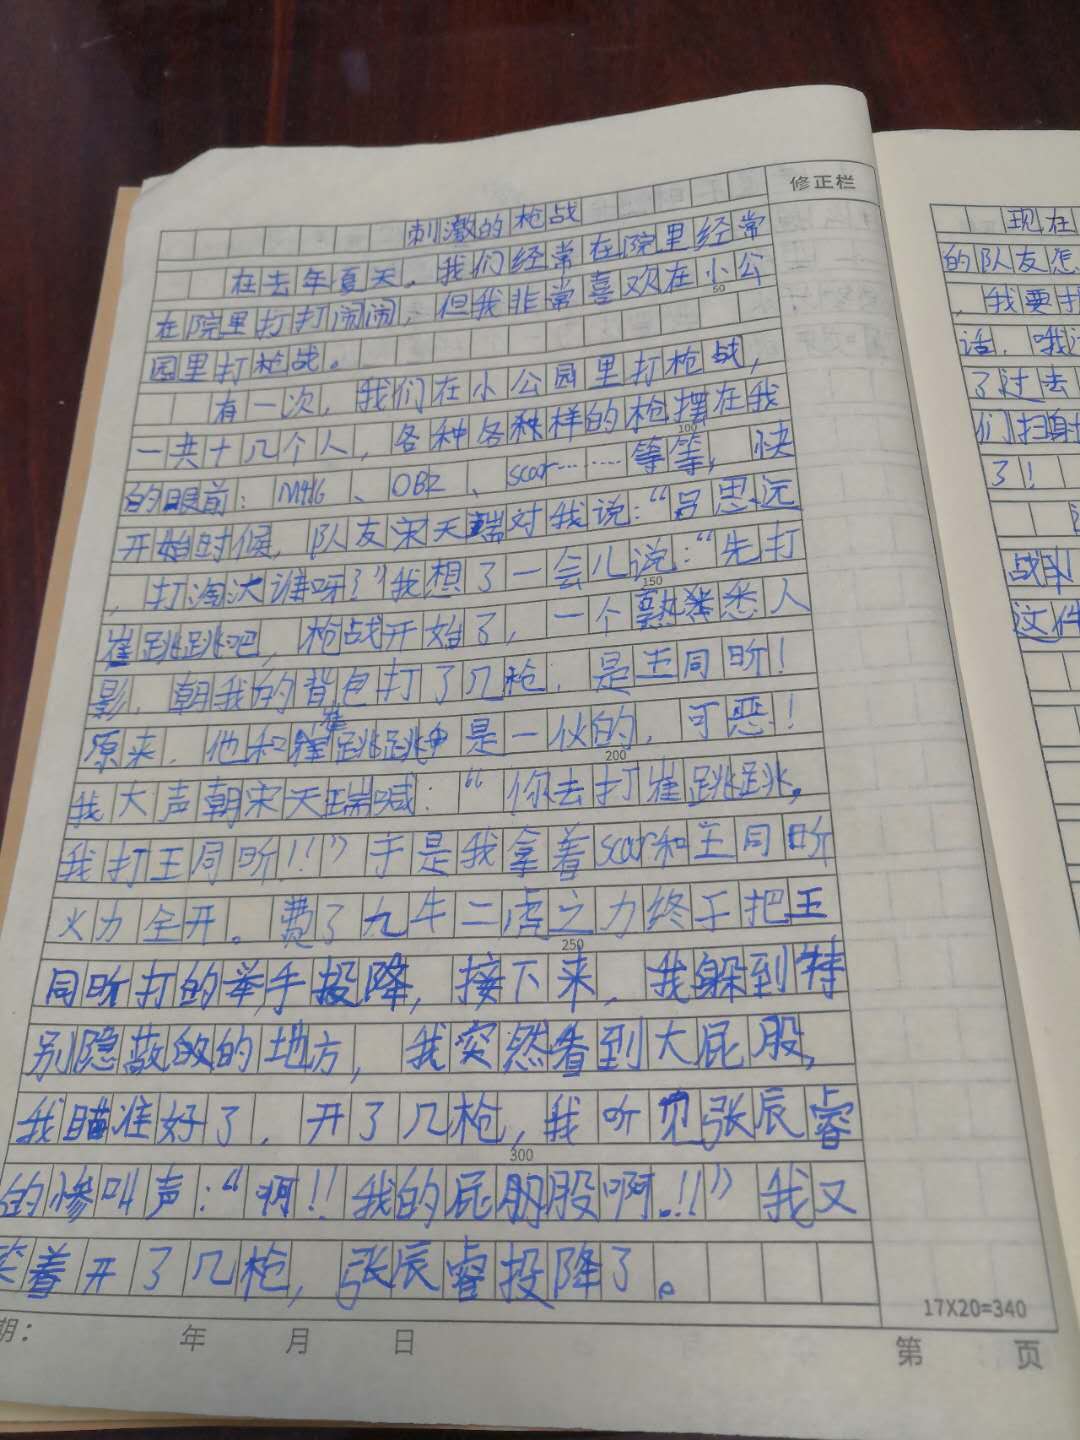 修正栏
刺激的枪战
在去年夏天。我们经常在院里经常
在院里打打闹闹，但我非常喜欢在小公
50
园里打枪战。
有一次，我们在小公园里打枪战，
一共十几个人，各种各种样的枪摆在我
100
的眼前：M416、OBR、scar……等等，快
开始时候，队友宋天端对我说：“吕思远
，打淘汰谁呀？”我想了一会儿说：“先打
150
崔跳跳吧，枪战开始了，一个熟悉人
影，朝我的背包打了几枪，是王同昕！
原来，他和崔跳跳是一伙的，可恶！
200
我大声朝宋天瑞喊：“你去打崔跳跳，
我打王同昕！！”于是我拿着scar和王同昕
火力全开。费了九牛二虎之力终于把王
250
同昕打的举手投降，接下来，我躲到特
别隐蔽的地方，我突然看到大屁股，
我瞄准好了，开了几枪，我听见张辰睿
300
的惨叫声：“啊！！我的屁股啊！！！”我又
笑着开了几枪，张辰睿投降了。
17X20=340
期： 年 月 日
第 页
现在
的队友怎
，我要打
话，哦
了过去
们扫射
了！
战斗
这件